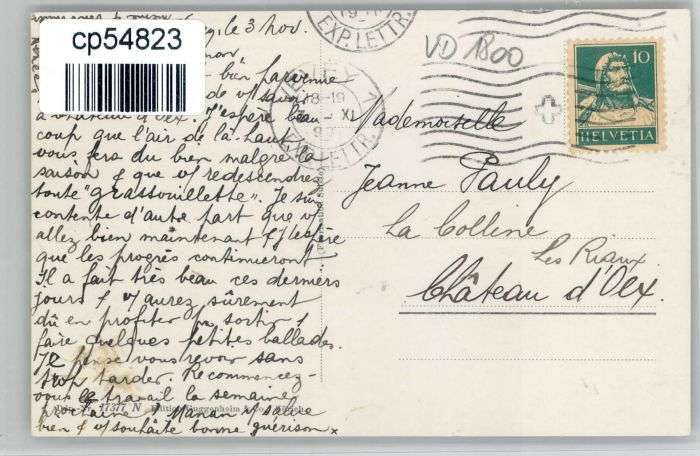 cp54823
le 3 nov.
bien parvenue
de v/ savoir
à Château d'Oex. J'espère beau-
coup que l'air de là-haut
vous fera du bien malgré la
saison & que v/ redescendrez
toute "grassouillette". Je suis
contente d'autre part que v/
allez bien maintenant & j'espère
que les progrès continueront
Il a fait très beau ces derniers
jours & v/ aurez sûrement
dû en profiter pr sortir &
faire quelques petites ballades.
Je pense vous revoir sans
trop tarder. Recommencez-
vous le travail la semaine
prochaine? Maman v/ salue
bien & v/ souhaite bonne guérison.
17377 N
EXP. LETTR.
18-19
XI
EXP. LETTR.
VD 1800
10
HELVETIA
Mademoiselle
Jeanne Pauly
La Colline
Les Riaux
Château d'Oex.